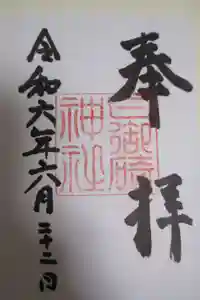 奉拝
日御碕
神社
令和六年六月二十二日